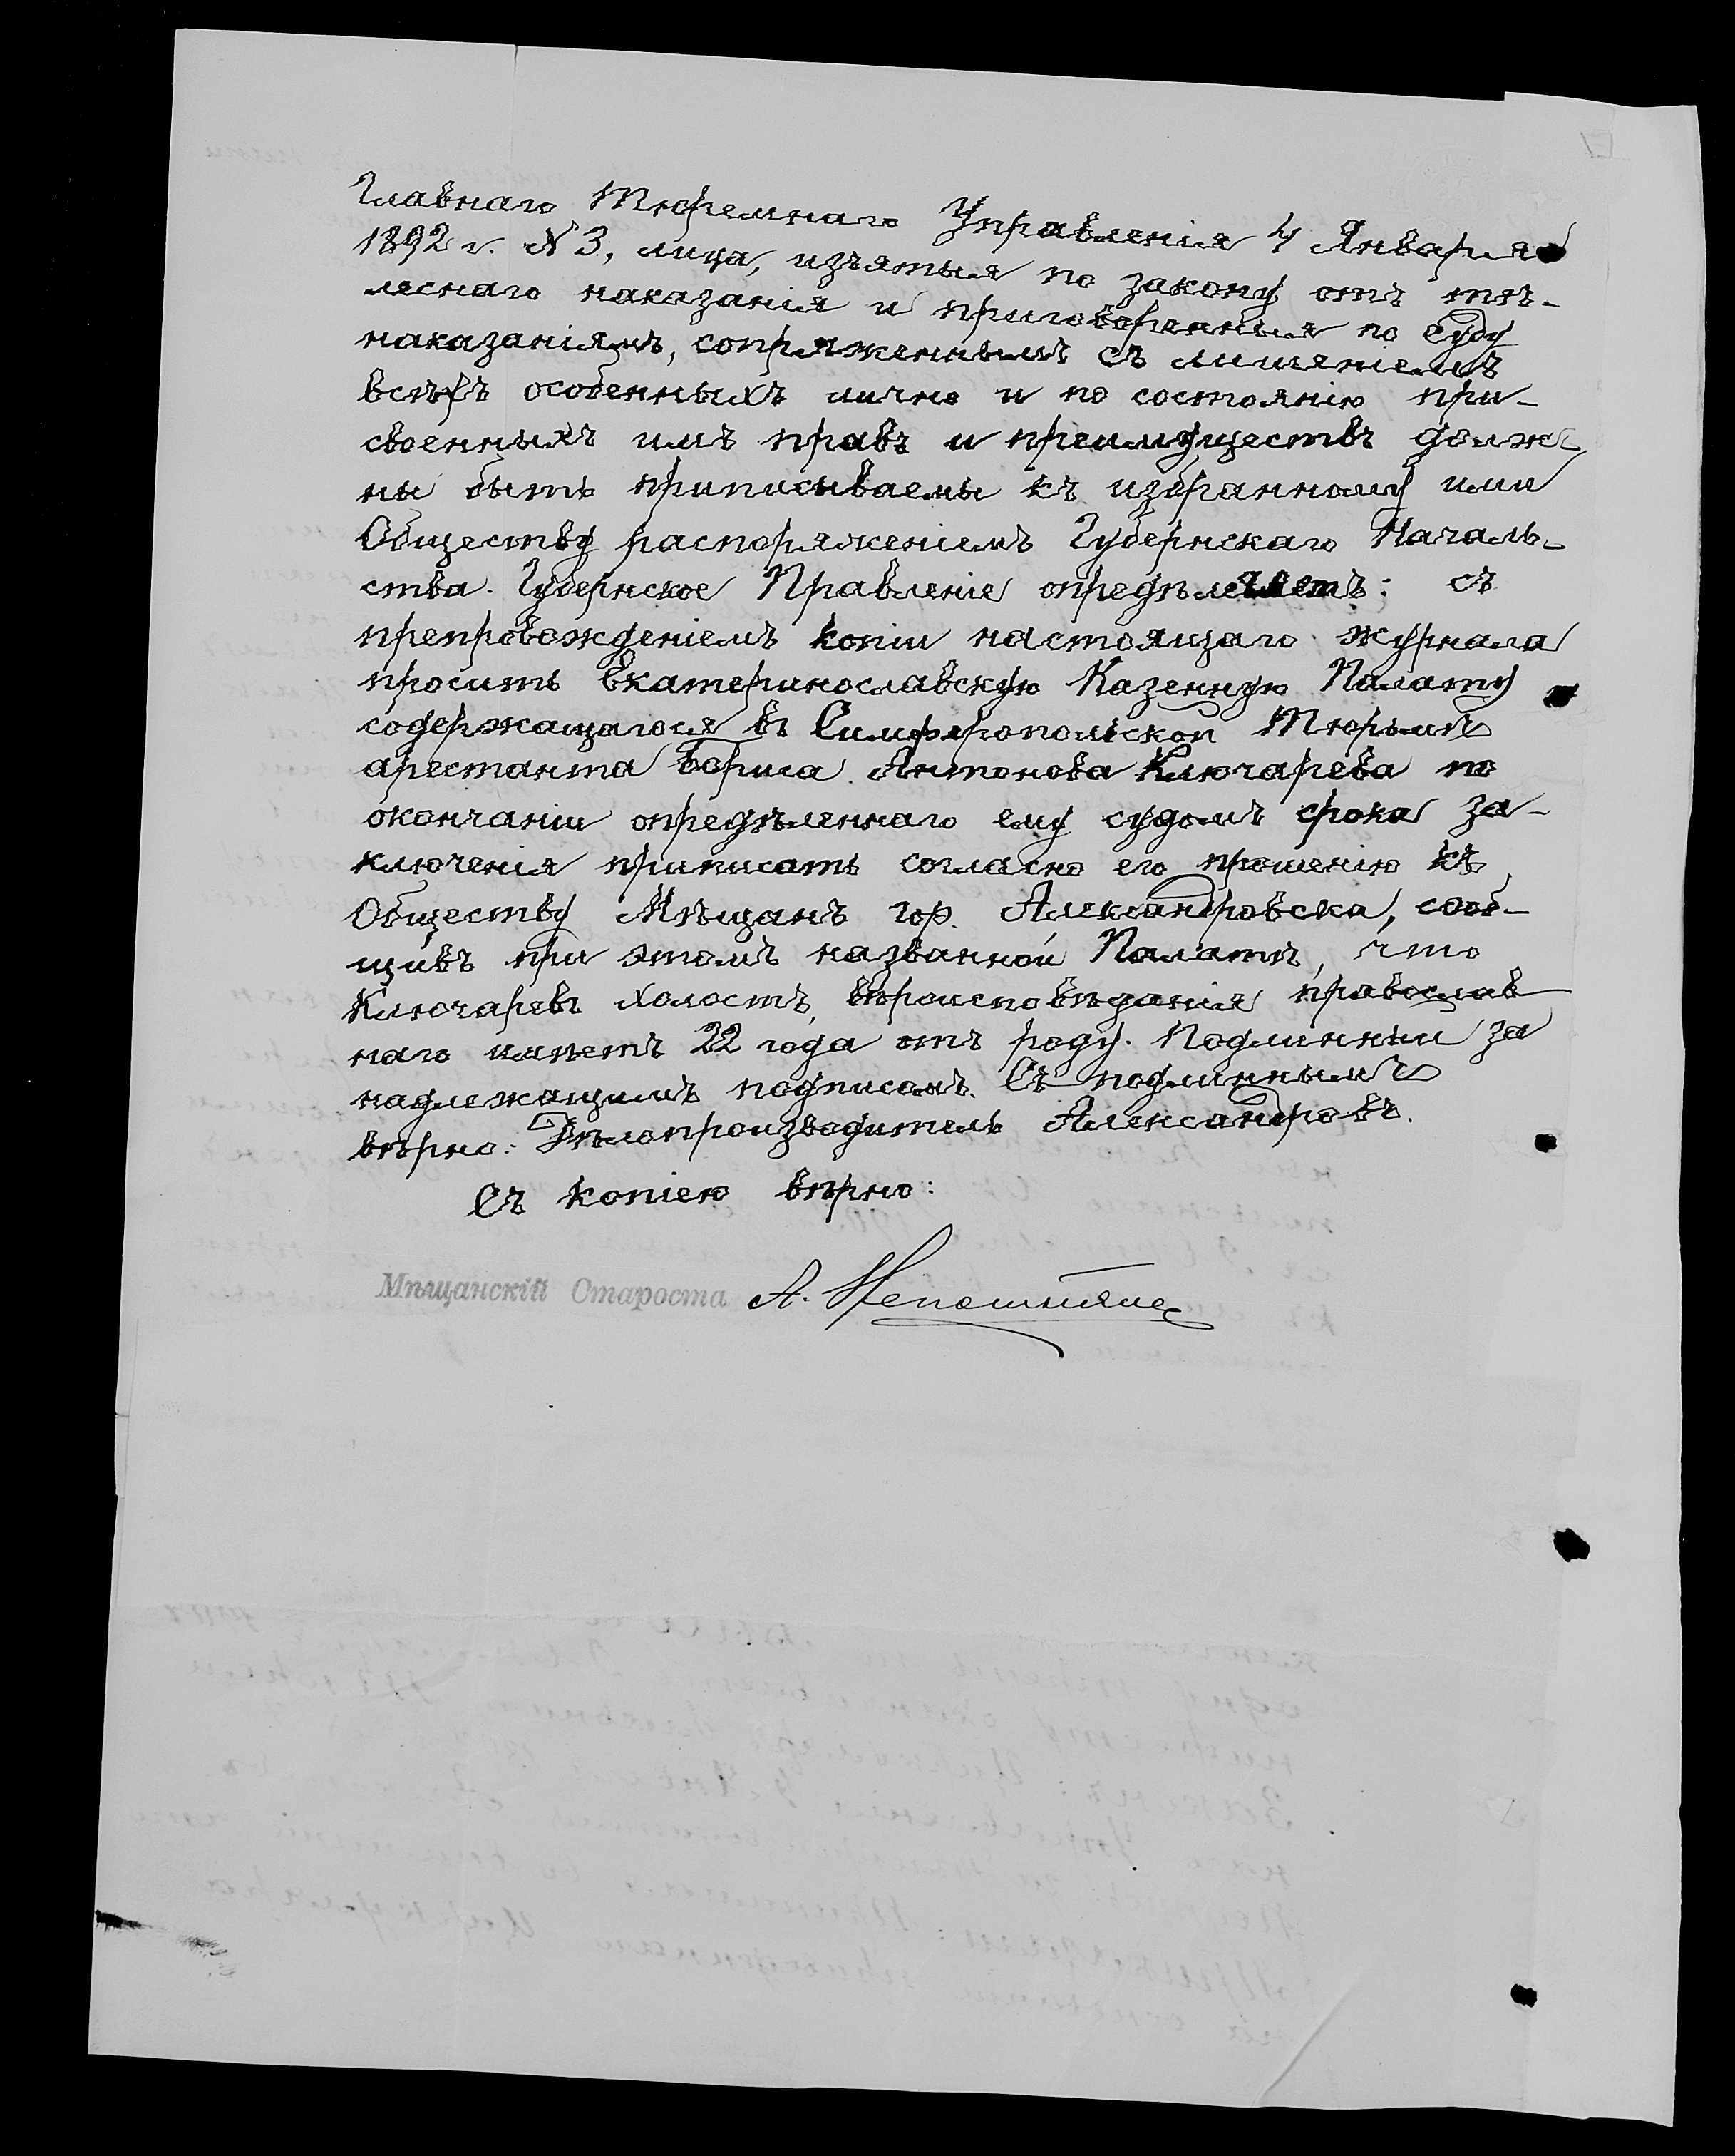 Главнаго Тюремнаго Управленія 4 Января
1892 г. № 3, лица, изъятыя по закону отъ тѣ-
леснаго наказанія и приговоренныя по суду
наказаніямъ, сопряженнымъ съ лишеніемъ
всѣхъ особенныхъ лично и по состоянію при-
своенныхъ имъ правъ и преимуществъ долж-
ны быть приписываемы къ избранному ими
Обществу распоряженіемъ Губернскаго Началь-
ства. Губернское Правленіе опредѣляетъ: съ
препровожденіемъ копіи настоящаго журнала
просить Екатеринославскую Казенную Палату
содержащагося въ Симферопольской Тюрьмѣ
арестанта Бориса Антонова Ключарева по
окончаніи опредѣленнаго ему судомъ срока за-
ключенія приписать согласно его прошенію къ
Обществу Мѣщанъ гор. Александровска, сооб-
щивъ при этомъ названной Палатѣ, что
Ключаревъ холостъ, вѣроисповѣданія православ
наго имѣетъ 22 года отъ роду. Подлинный за
надлежащимъ подписомъ. Съ подлиннымъ
вѣрно: Дѣлопроизводитель Александровъ.
Съ копіею вѣрно:
Мѣщанскій Староста А.